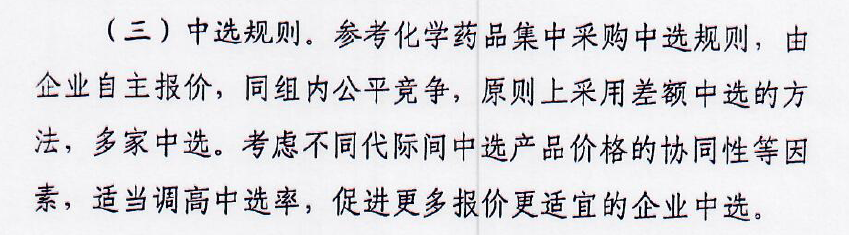 （三）中选规则。参考化学药品集中采购中选规则，由
企业自主报价，同组内公平竞争，原则上采用差额中选的方
法，多家中选。考虑不同代际间中选产品价格的协同性等因
素，适当调高中选率，促进更多报价更适宜的企业中选。